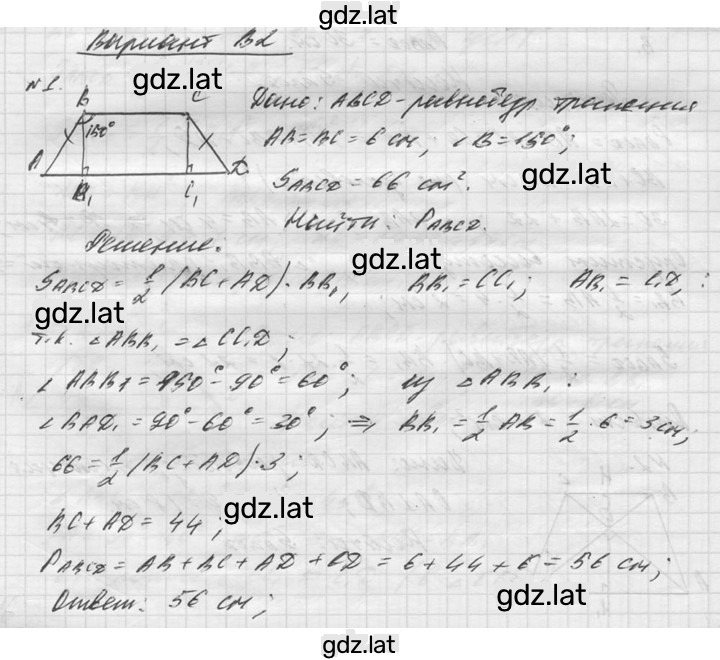 gdz.lat
Вариант В2
gdz.lat
№1.
B C
150°
A D
B₁ C₁
Дано: ABCD - равнобедр. трапеция
AB = BC = 6 см, ∠B = 150°;
gdz.lat
S_ABCD = 66 см².
Найти: P_ABCD.
Решение:
gdz.lat
S_ABCD = 1/2 (BC + AD) · BB₁, BB₁ = CC₁; AB₁ = C₁D, :
gdz.lat
т.к. △ABB₁ = △CC₁D;
∠ABB1 = 150° - 90° = 60°; из △ABB₁:
∠BAD₁ = 90° - 60° = 30°; ⇒ BB₁ = 1/2 AB = 1/2 · 6 = 3 см;
66 = 1/2 (BC + AD) · 3;
gdz.lat
BC + AD = 44;
P_ABCD = AB + BC + AD + CD = 6 + 44 + 6 = 56 см;
gdz.lat
Ответ: 56 см;
gdz.lat